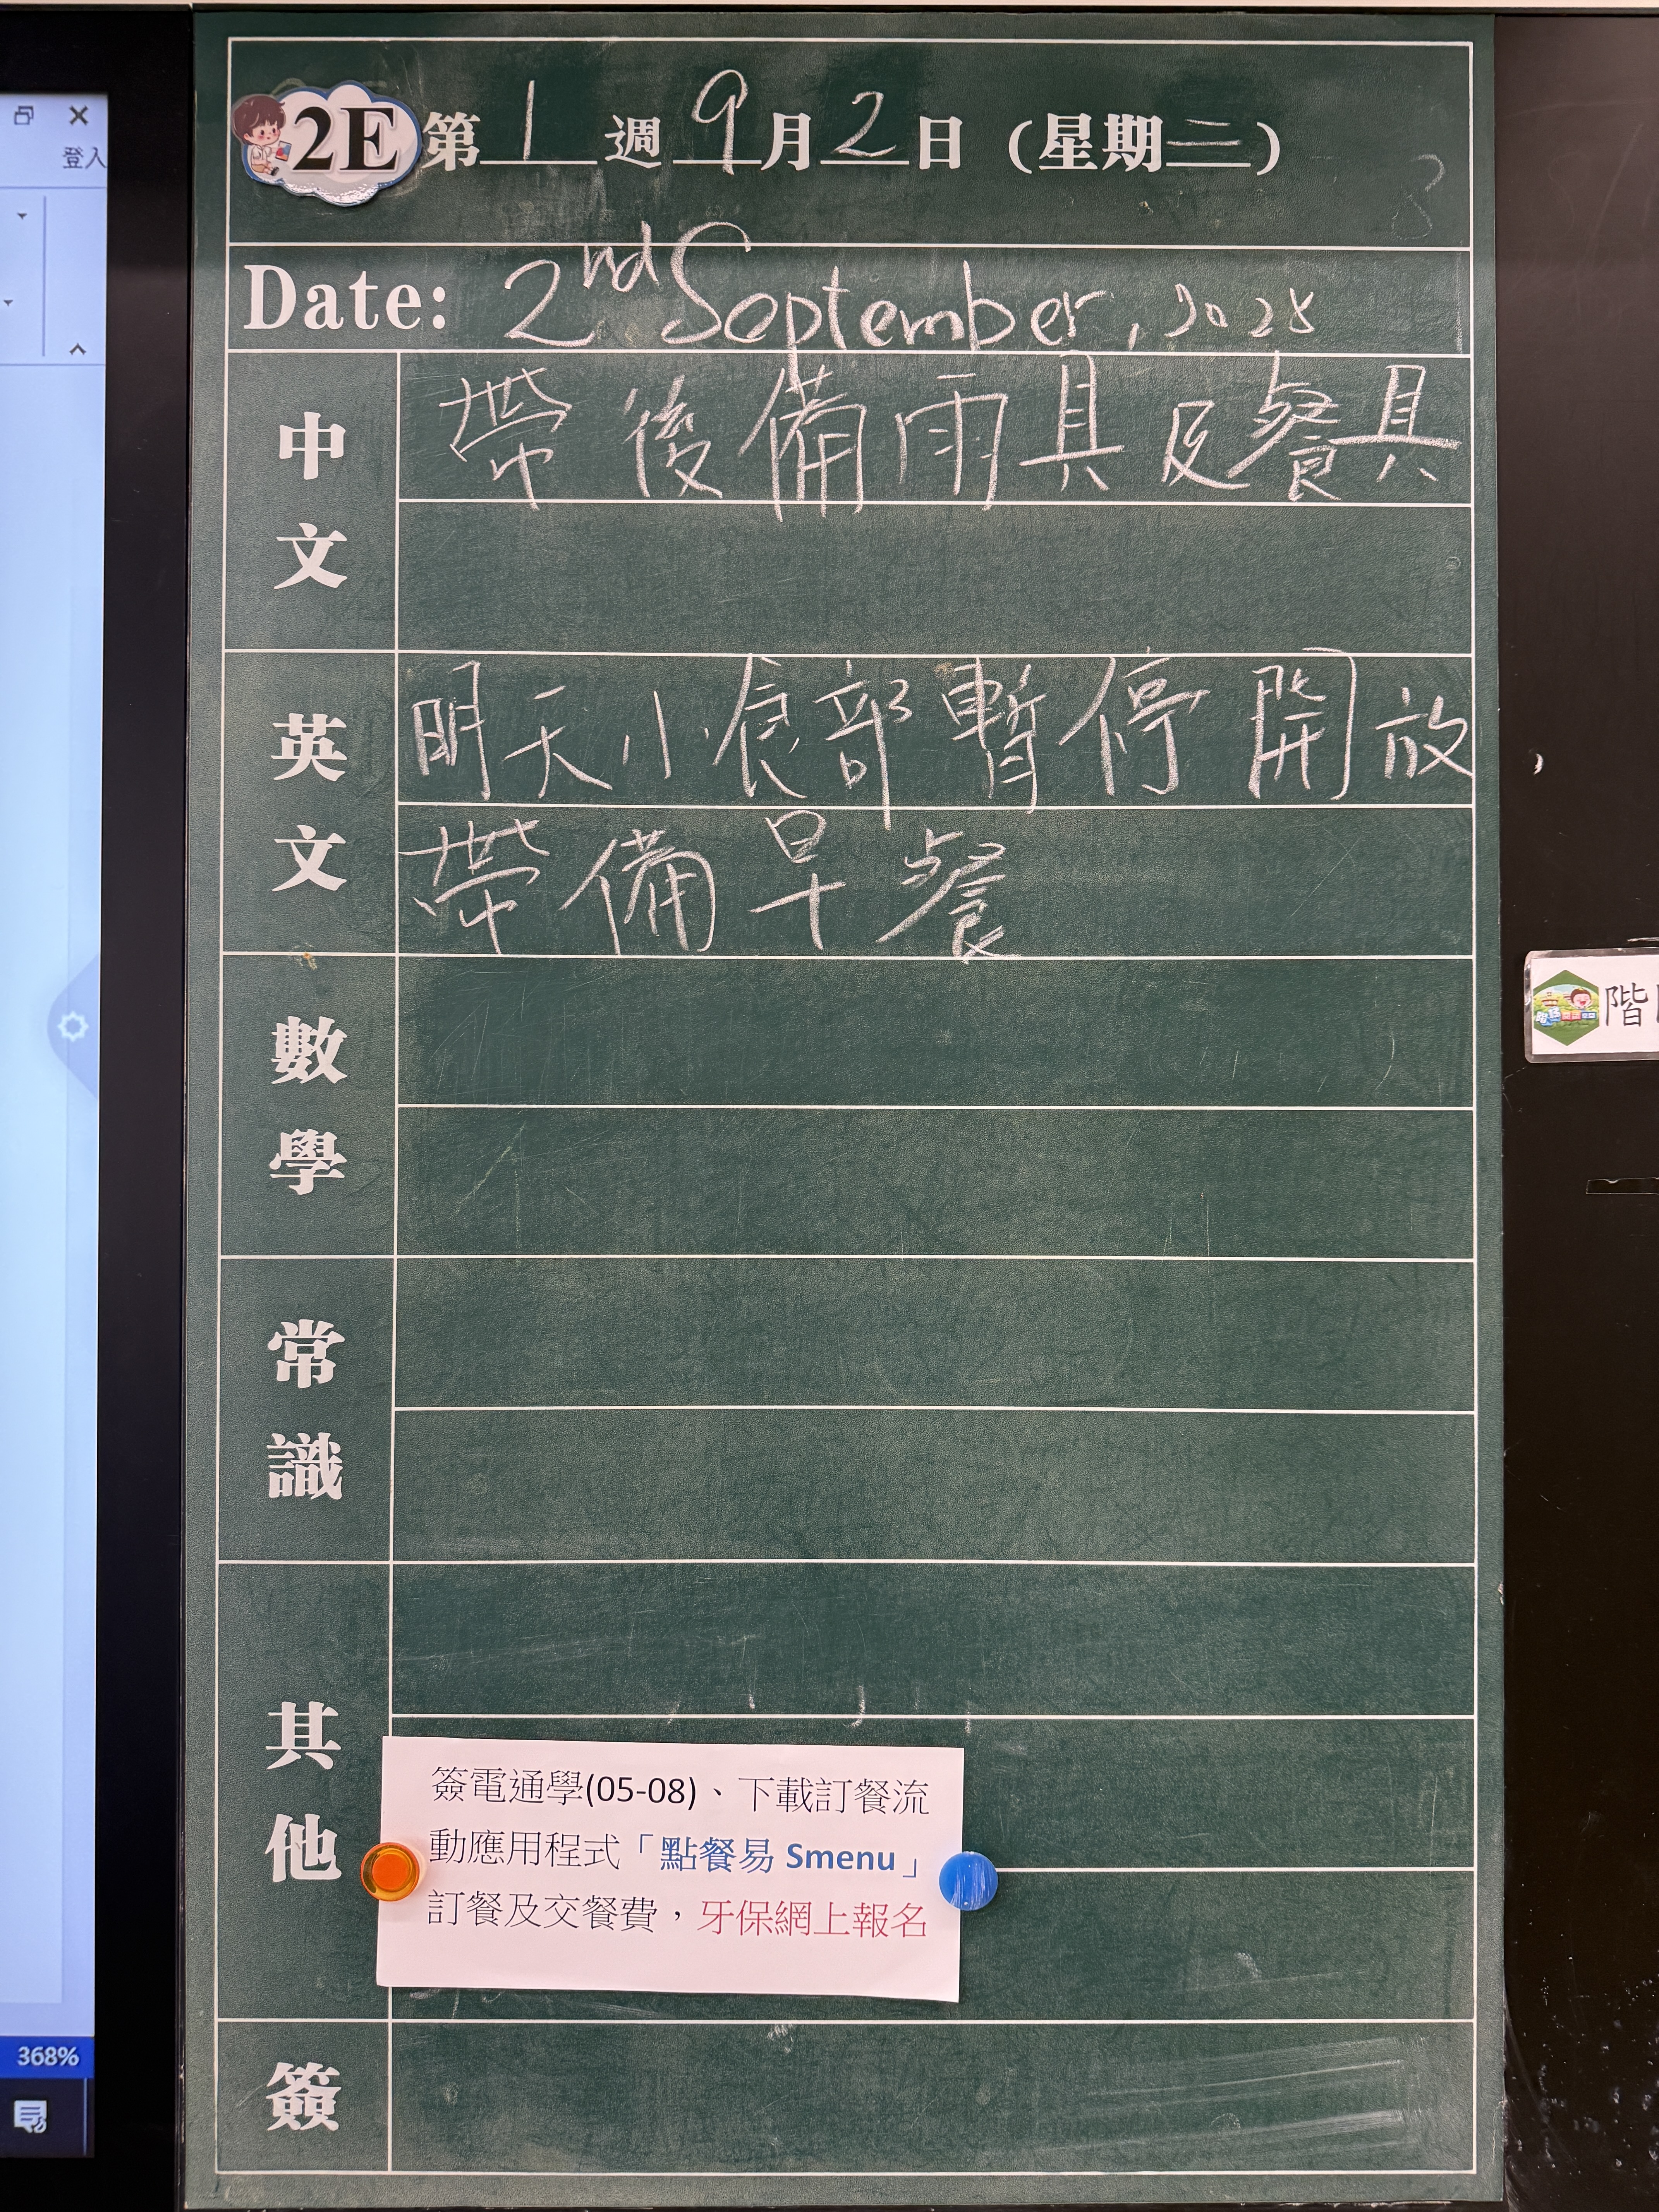 登入
2E 第 1 週 9 月 2 日 (星期二)
Date: 2nd September, 2025
中文
帶後備雨具及餐具
英文
明天小食部暫停開放,
帶備早餐
數學
常識
其他
簽電通學(05-08)、下載訂餐流
動應用程式「點餐易 Smenu」
訂餐及交餐費，牙保網上報名
簽
368%
階